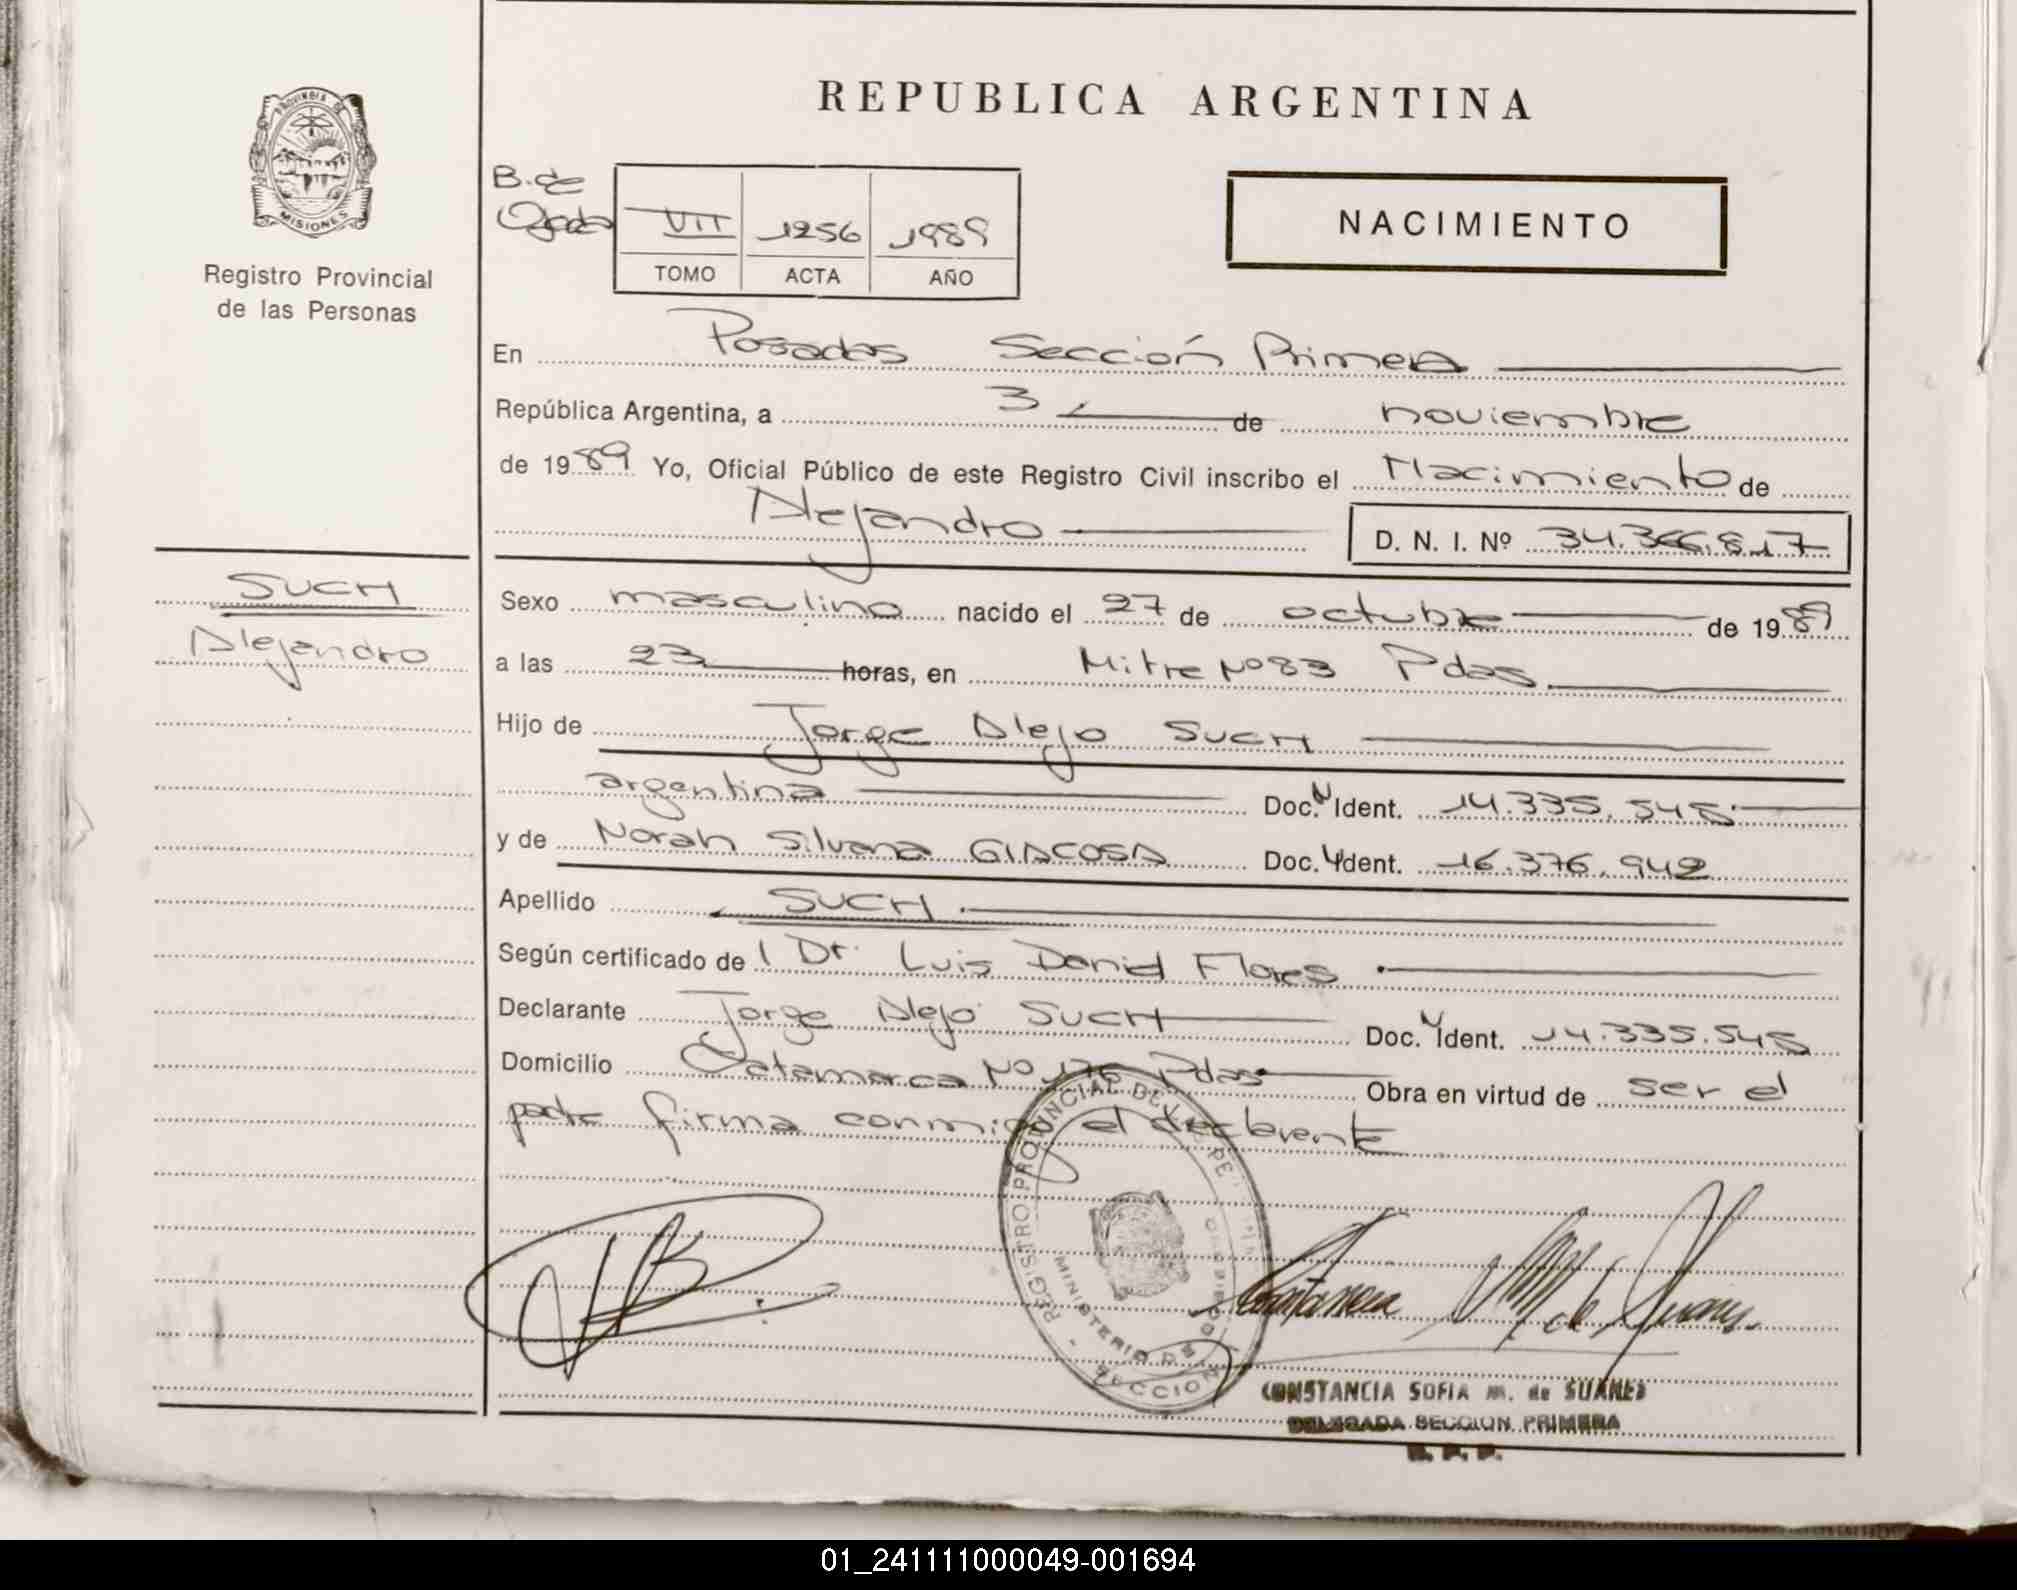 REPUBLICA ARGENTINA
PROVINCIA DE
MISIONES
Registro Provincial
de las Personas
B. de
VII 1256 1989
TOMO ACTA AÑO
NACIMIENTO
En Posadas Sección Primera
República Argentina, a 3 de noviembre
de 1989 Yo, Oficial Público de este Registro Civil inscribo el Nacimiento de
Alejandro D. N. I. Nº 34.366.817
SUCH
Alejandro
Sexo masculino nacido el 27 de octubre de 1989
a las 23 horas, en Mitre Nº 83 Pdas
Hijo de Jorge Alejo SUCH
argentina Doc. N Ident. 14.335.545
y de Norah Silvana GIACOSA Doc. Ident. 16.376.942
Apellido SUCH
Según certificado de l Dr. Luis Daniel Flores
Declarante Jorge Alejo SUCH Doc. N Ident. 14.335.545
Domicilio Catamarca Nº 176 Pdas Obra en virtud de ser el
padre firma conmigo el declarante
REGISTRO PROVINCIAL DE LAS PE
MINISTERIO DE
SECCION
CONSTANCIA SOFIA M. de SUAREZ
DELEGADA SECCION PRIMERA
R. P. P.
01_241111000049-001694